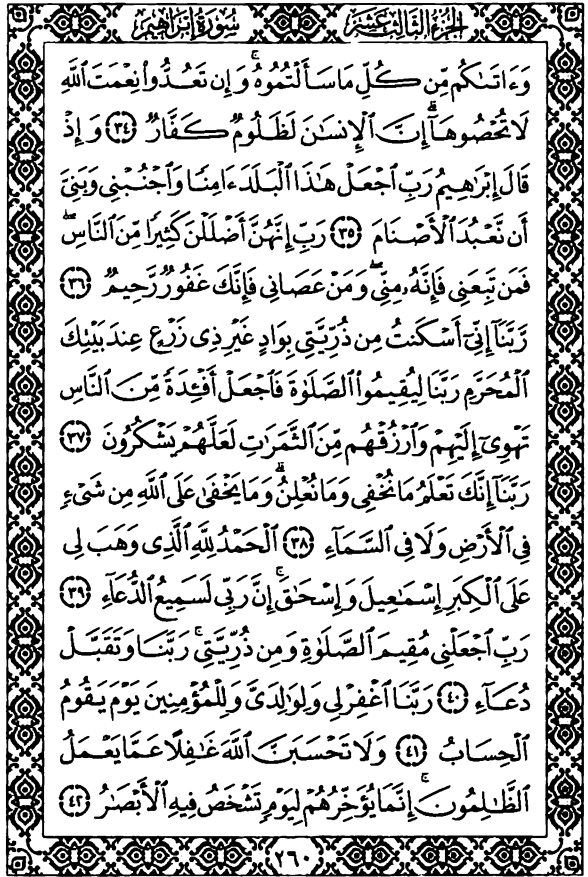 سُورَةُ إِبْرَاهِيمَ الجُزْءُ الثَّالِثَ عَشَرَ
وَءَاتَىٰكُم مِّن كُلِّ مَا سَأَلْتُمُوهُۚ وَإِن تَعُدُّوا۟ نِعْمَتَ ٱللَّهِ
لَا تُحْصُوهَآۗ إِنَّ ٱلْإِنسَٰنَ لَظَلُومٌ كَفَّارٌ ٣٤ وَإِذْ
قَالَ إِبْرَٰهِيمُ رَبِّ ٱجْعَلْ هَٰذَا ٱلْبَلَدَ ءَامِنًا وَٱجْنُبْنِى وَبَنِىَّ
أَن نَّعْبُدَ ٱلْأَصْنَامَ ٣٥ رَبِّ إِنَّهُنَّ أَضْلَلْنَ كَثِيرًا مِّنَ ٱلنَّاسِۖ
فَمَن تَبِعَنِى فَإِنَّهُۥ مِنِّىۖ وَمَنْ عَصَانِى فَإِنَّكَ غَفُورٌ رَّحِيمٌ ٣٦
رَّبَّنَآ إِنِّىٓ أَسْكَنتُ مِن ذُرِّيَّتِى بِوَادٍ غَيْرِ ذِى زَرْعٍ عِندَ بَيْتِكَ
ٱلْمُحَرَّمِ رَبَّنَا لِيُقِيمُوا۟ ٱلصَّلَوٰةَ فَٱجْعَلْ أَفْـِٔدَةً مِّنَ ٱلنَّاسِ
تَهْوِىٓ إِلَيْهِمْ وَٱرْزُقْهُم مِّنَ ٱلثَّمَرَٰتِ لَعَلَّهُمْ يَشْكُرُونَ ٣٧
رَبَّنَآ إِنَّكَ تَعْلَمُ مَا نُخْفِى وَمَا نُعْلِنُۗ وَمَا يَخْفَىٰ عَلَى ٱللَّهِ مِن شَىْءٍ
فِى ٱلْأَرْضِ وَلَا فِى ٱلسَّمَآءِ ٣٨ ٱلْحَمْدُ لِلَّهِ ٱلَّذِى وَهَبَ لِى
عَلَى ٱلْكِبَرِ إِسْمَٰعِيلَ وَإِسْحَٰقَۚ إِنَّ رَبِّى لَسَمِيعُ ٱلدُّعَآءِ ٣٩
رَبِّ ٱجْعَلْنِى مُقِيمَ ٱلصَّلَوٰةِ وَمِن ذُرِّيَّتِىۚ رَبَّنَا وَتَقَبَّلْ
دُعَآءِ ٤٠ رَبَّنَا ٱغْفِرْ لِى وَلِوَٰلِدَىَّ وَلِلْمُؤْمِنِينَ يَوْمَ يَقُومُ
ٱلْحِسَابُ ٤١ وَلَا تَحْسَبَنَّ ٱللَّهَ غَٰفِلًا عَمَّا يَعْمَلُ
ٱلظَّٰلِمُونَۚ إِنَّمَا يُؤَخِّرُهُمْ لِيَوْمٍ تَشْخَصُ فِيهِ ٱلْأَبْصَٰرُ ٤٢
٢٦٠